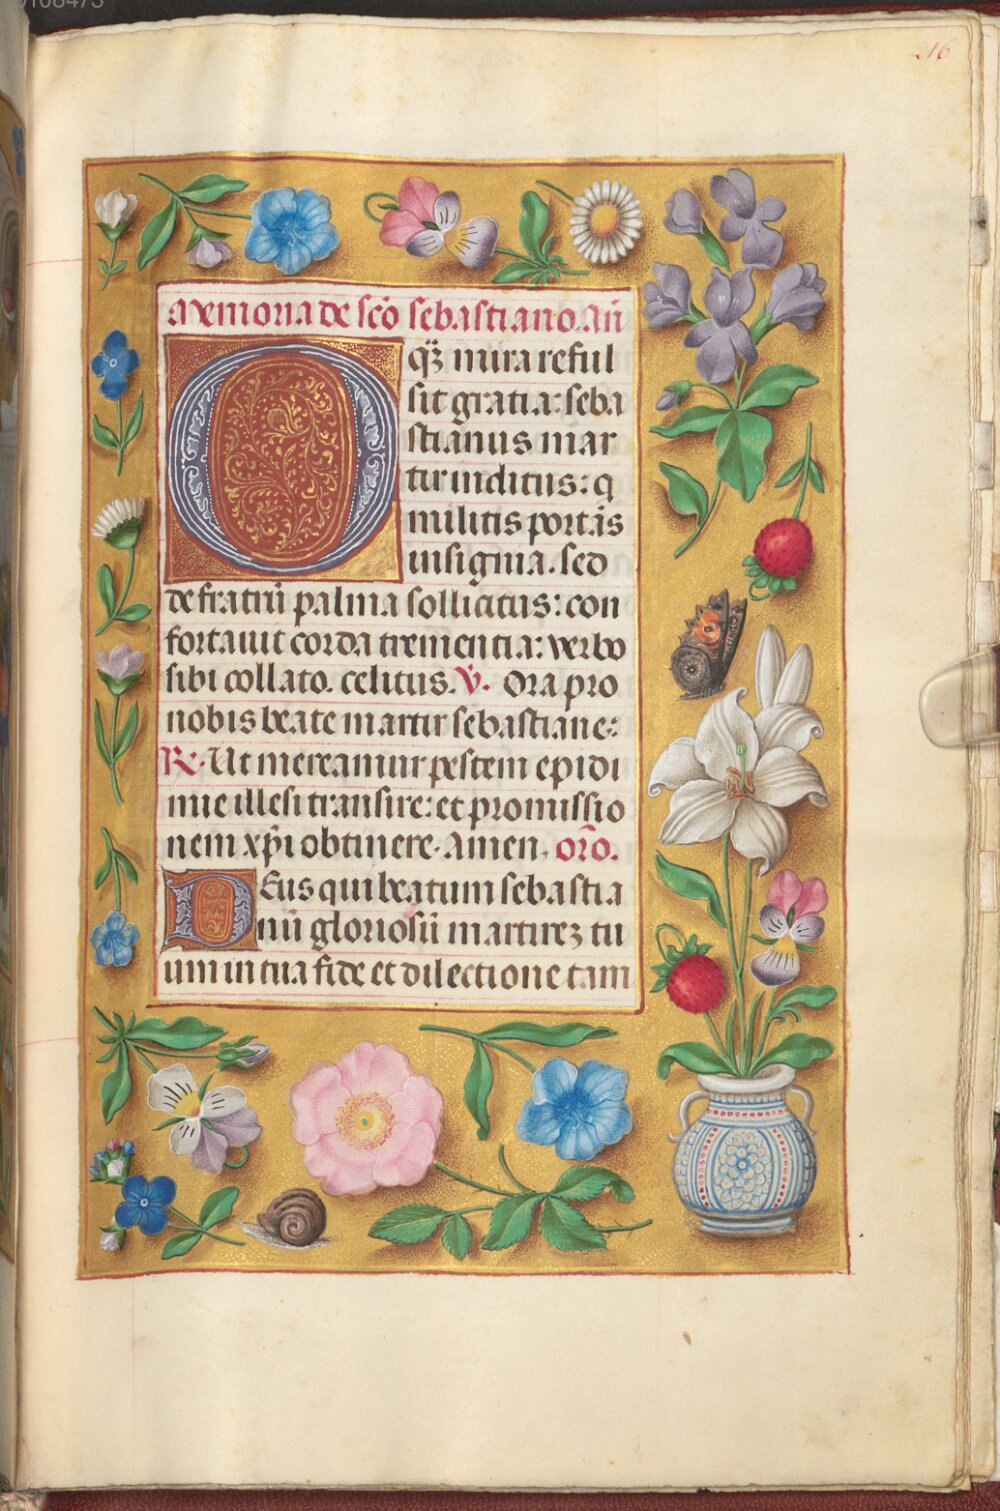 216
Memoria de sc̄o sebastiano. an̄
O qꝫ mira reful
sit gratia: seba
stianus mar
tir inclitus: q
militis portās
insignia. sed
de fratrū palma sollicitus: con
fortauit corda trementia: verbo
sibi collato. celitus. V̄. Ora pro
nobis beate martir sebastiane:
R̄. Ut mereamur pestem epidi
mie illesi transire: et promissio
nem xp̄i obtinere. Amen. or̄o.
Deus qui beatum sebastia
nū gloriosū martirēꝫ tu
um in tua fide et dilectione tam